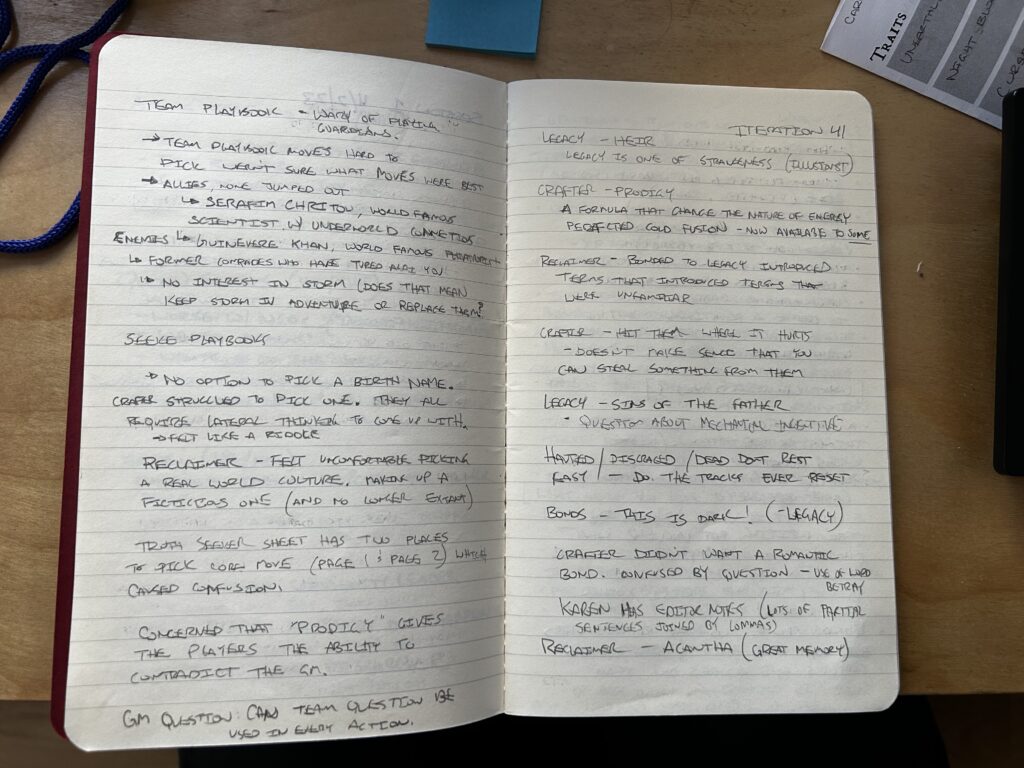 TEAM PLAYBOOK - WARY OF PLAYING
"GUARDIANS."
→ TEAM PLAYBOOK MOVES HARD TO
PICK WEREN'T SURE WHAT MOVES WERE BEST
→ ALLIES, NONE JUMPED OUT
↳ SERAFIM CHRITOU, WORLD FAMOUS
SCIENTIST W/ UNDERWORLD CONNECTIOS
ENEMIES ↳ GUINEVERE KHAN, WORLD FAMOUS
↳ FORMER COMRADES WHO HAVE TURED YOU
↳ NO INTEREST IN STORM (DOES THAT MEAN
KEEP STORM IN ADVENTURE OR REPLACE THEM?
PLAYBOOKS
→ NO OPTION TO PICK A BIRTH NAME.
CRAFTER STRUGGLED TO PICK ONE. THEY ALL
REQUIRE LATERAL THINKING TO COME UP WITH.
→ FELT LIKE A RIDDLE
RECLAIMER - FELT UNCOMFORTABLE PICKING
A REAL WORLD CULTURE. MAKING UP A
FICTICIOUS ONE (AND NO LONGER EXTANT)
TRUTH SEEKER SHEET HAS TWO PLACES
TO PICK CORE MOVE (PAGE 1 & PAGE 2) WHICH
CAUSED CONFUSION.
CONCERNED THAT "PRODIGY" GIVES
THE PLAYERS THE ABILITY TO
CONTRADICT THE GM.
GM QUESTION: CAN TEAM QUESTION BE
USED IN EVERY ACTION.
ITERATION 41
LEGACY - HEIR
LEGACY IS ONE OF STRANGENESS (ILLUSIONIST)
CRAFTER - PRODIGY
A FORMULA THAT CHANGE THE NATURE OF ENERGY
PERFECTED COLD FUSION - NOW AVAILABLE TO SOME
RECLAIMER - BONDED TO LEGACY INTRODUCED
TERMS THAT INTRODUCED TERMS THAT
WERE UNFAMILIAR
CRAFTER - HIT THEM WHERE IT HURTS
- DOESN'T MAKE SENCE THAT YOU
CAN STEAL SOMETHING FROM THEM
LEGACY - SINS OF THE FATHER
- QUESTION ABOUT MECHANICAL INCENTIVE
HAUTED / DISGRACED / DEAD DON'T REST
EASY - DO THE TRACKS EVER RESET
BONDS - THIS IS DARK! (-LEGACY)
CRAFTER DIDN'T WANT A ROMANTIC
BOND. CONFUSED BY QUESTION - USE OF WORD
BETRAY
KAREN HAS EDITOR NOTES (LOTS OF PARTIAL
SENTENCES JOINED BY COMMAS)
RECLAIMER - ACANTHA (GREAT MEMORY)
TRAITS